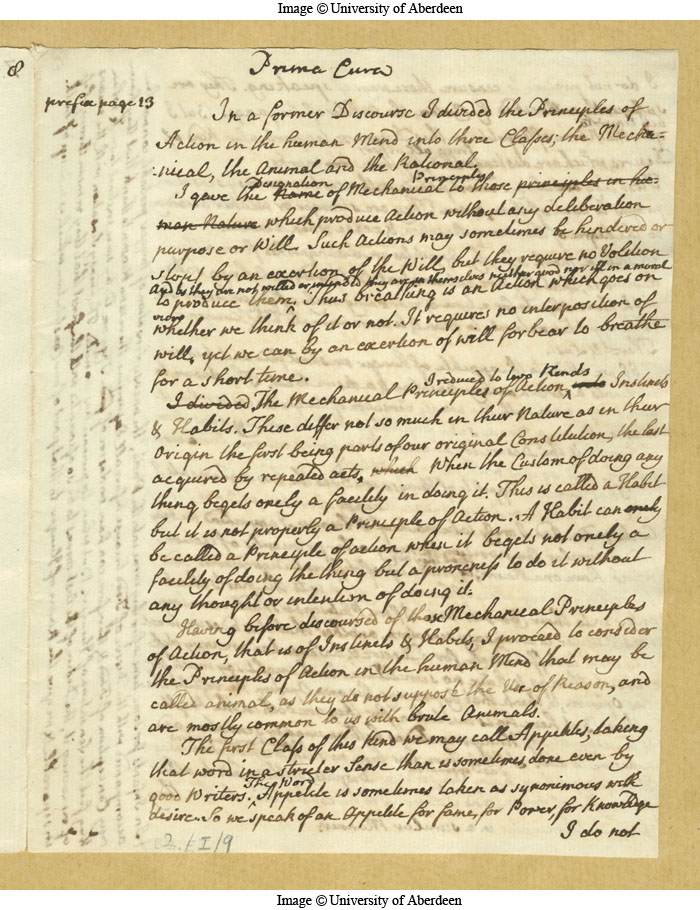 Image © University of Aberdeen
8
Prima Cura
prefix page 13
In a former Discourse I divided the Principles of
Action in the human Mind into three Classes; the Mecha=
=nical, the Animal and the Rational.
I gave the Name Designation of Mechanical Principles to those principles in hu=
man Nature which produce Action without any deliberation
purpose or Will. Such Actions may sometimes be hindered or
stopt by an exertion of the Will, but they require no Volition
And as they are not willed or intended they are in themselves neither good nor ill in a moral
to produce them, Thus breathing is an Action which goes on
view
whether we think of it or not. It requires no interposition of
will, yet we can by an exertion of will forbear to breathe
for a short time.
I divided The Mechanical Principles of Action, I reduced to two Kinds into Instincts
& Habits. These differ not so much in their Nature as in their
Origin the first being parts of our original Constitution, the last
acquired by repeated acts, which When the Custom of doing any
thing begets onely a facility in doing it. This is called a Habit
but it is not properly a Principle of Action. A Habit can onely
be called a Principle of action when it begets not onely a
facility of doing the thing but a proneness to do it without
any thought or intention of doing it.
Having before discoursed of those Mechanical Principles
of Action, that is of Instincts & Habits, I proceed to consider
the Principles of Action in the human Mind that may be
called animal, as they do not suppose the Use of Reason, and
are mostly common to us with brute Animals.
The first Class of this Kind we may call Appetites, taking
that word in a stricter Sense than is sometimes done even by
good Writers. The Word Appetite is sometimes taken as synonimous with
desire. So we speak of an Appetite for fame, for Power, for Knowledge
I do not
2/I/9
Image © University of Aberdeen